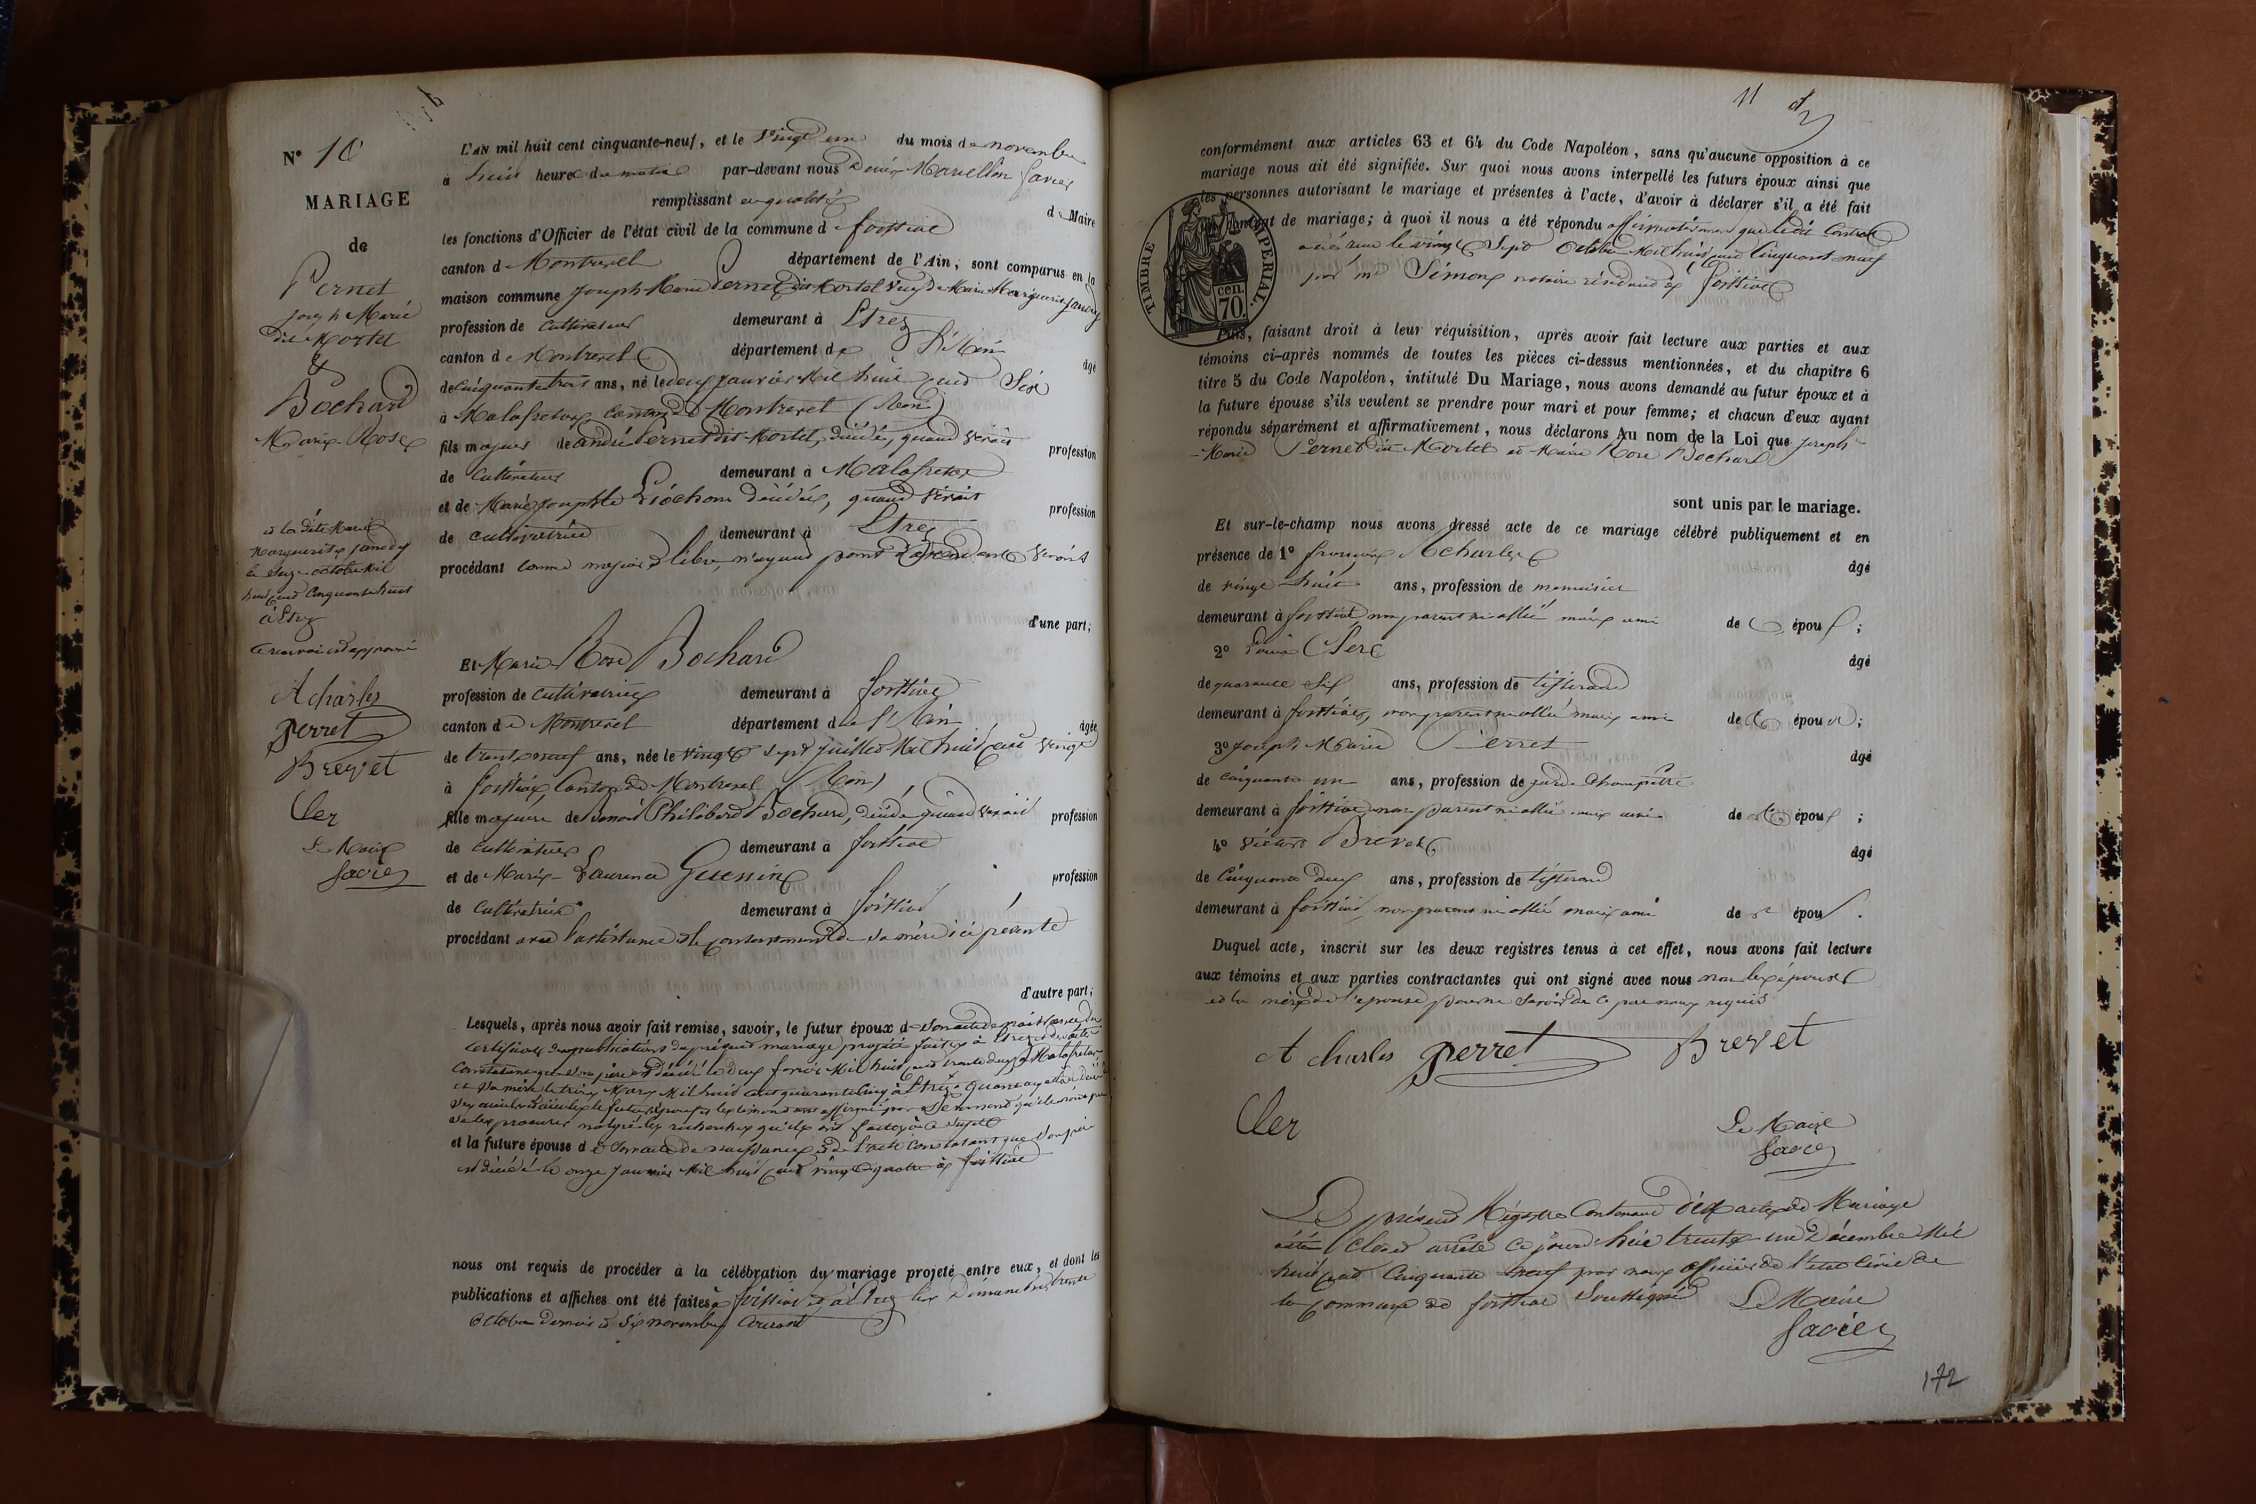 N° 10
MARIAGE
de
Pernet
Joseph Marie
dit Mortel
&
Bochard
Marie Rose
à la dite Marie
Marguerite Jandy
le onze octobre mil
huit cent cinquante huit
à Etrez
Le renvoi est approuvé
A charles
perret
Brevet
Cler
Le Maire
favier
L'AN mil huit cent cinquante-neuf, et le vingt un du mois de novembre
à huit heures du matin par-devant nous Denis Marcellin favier
remplissant en qualité de Maire
les fonctions d'Officier de l'état civil de la commune de foissiat
canton de Montrevel département de l'Ain, sont comparus en la
maison commune Joseph Marie Pernet dit Mortel veuf de Marie Marguerite Jandy
profession de Cultivateur demeurant à Etrez
canton de Montrevel département de l'Ain âgé
de cinquante trois ans, né le deux janvier Mil huit cent Six
à Malafretaz canton de Montrevel (Ain)
fils majeur de andré Pernet dit Mortel, décédé, quand vivait profession
de Cultivateur demeurant à Malafretaz
et de Marie Josephte décédée, quand vivait profession
de cultivatrice demeurant à Etrez
procédant comme majeur & libre, n'ayant point d'ascendants vivants
d'une part;
Et Marie Rose Bochard
profession de cultivatrice demeurant à foissiat
canton de Montrevel département de l'Ain âgée
de trente neuf ans, née le vingt sept juillet Mil huit cent vingt
à foissiat, Canton de Montrevel (Ain),
fille majeure de Benoit Philibert Bochard, décédé quand vivait profession
de Cultivateur demeurant à foissiat
et de Marie Laurence Guerrin profession
de Cultivatrice demeurant à foissiat
procédant avec l'assistance & le consentement de sa mère ici présente
d'autre part;
Lesquels, après nous avoir fait remise, savoir, le futur époux de son acte de naissance, du
certificat des publications du présent mariage projeté faites à Etrez & des actes
constatant que son père est décédé le deux février Mil huit cent trente deux à Malafretaz
et sa mère le treize Mars Mil huit cent quarante cinq à Etrez. Quant aux actes de décès
de ses aieuls & aieules le futur époux & les témoins ont affirmé par serment qu'ils n'ont pu
se les procurer malgré les recherches qu'ils ont faites à ce sujet
et la future épouse de son acte de naissance & de l'acte constatant que son père
est décédé le onze janvier Mil huit cent vingt quatre à foissiat
nous ont requis de procéder à la célébration du mariage projeté entre eux, et dont les
publications et affiches ont été faites à foissiat & à Etrez les Dimanches trente
octobre dernier & six novembre courant
11
conformément aux articles 63 et 64 du Code Napoléon, sans qu'aucune opposition à ce
mariage nous ait été signifiée. Sur quoi nous avons interpellé les futurs époux ainsi que
les personnes autorisant le mariage et présentes à l'acte, d'avoir à déclarer s'il a été fait
un contrat de mariage; à quoi il nous a été répondu affirmativement que ledit Contrat
a été reçu le vingt Sept Octobre Mil huit cent Cinquante neuf
par Me Simon notaire résidant à foissiat
TIMBRE IMPERIAL.
cen.
70.
Puis, faisant droit à leur réquisition, après avoir fait lecture aux parties et aux
témoins ci-après nommés de toutes les pièces ci-dessus mentionnées, et du chapitre 6
titre 5 du Code Napoléon, intitulé Du Mariage, nous avons demandé au futur époux et à
la future épouse s'ils veulent se prendre pour mari et pour femme; et chacun d'eux ayant
répondu séparément et affirmativement, nous déclarons Au nom de la Loi que Joseph
Marie Pernet dit Mortel et Marie Rose Bochard
sont unis par le mariage.
Et sur-le-champ nous avons dressé acte de ce mariage célébré publiquement et en
présence de 1° françois Acharles âgé
de vingt huit ans, profession de menuisier
demeurant à foissiat non parent ni allié mais ami de l' époux;
2° Denis Clerc âgé
de quarante Six ans, profession de tisserand
demeurant à foissiat, non parent ni allié mais ami de l' époux;
3° Joseph Marie Perret âgé
de Cinquante un ans, profession de garde champêtre
demeurant à foissiat non parent ni allié mais ami de l' époux;
4° Brevet âgé
de Cinquante deux ans, profession de tisserand
demeurant à foissiat, non parent ni allié mais ami de l' époux.
Duquel acte, inscrit sur les deux registres tenus à cet effet, nous avons fait lecture
aux témoins et aux parties contractantes qui ont signé avec nous non les époux
et la mère de l'épouse pour ne savoir de ce par nous requis
A charles perret Brevet
Cler
Le Maire
favier
Le présent Régistre Contenant dix actes de Mariage
a été Clos et arrêté ce jourd'hui trente un Décembre Mil
huit cent Cinquante neuf par nous officier de l'état Civil de
la Commune de foissiat Soussigné
Le Maire
favier
172